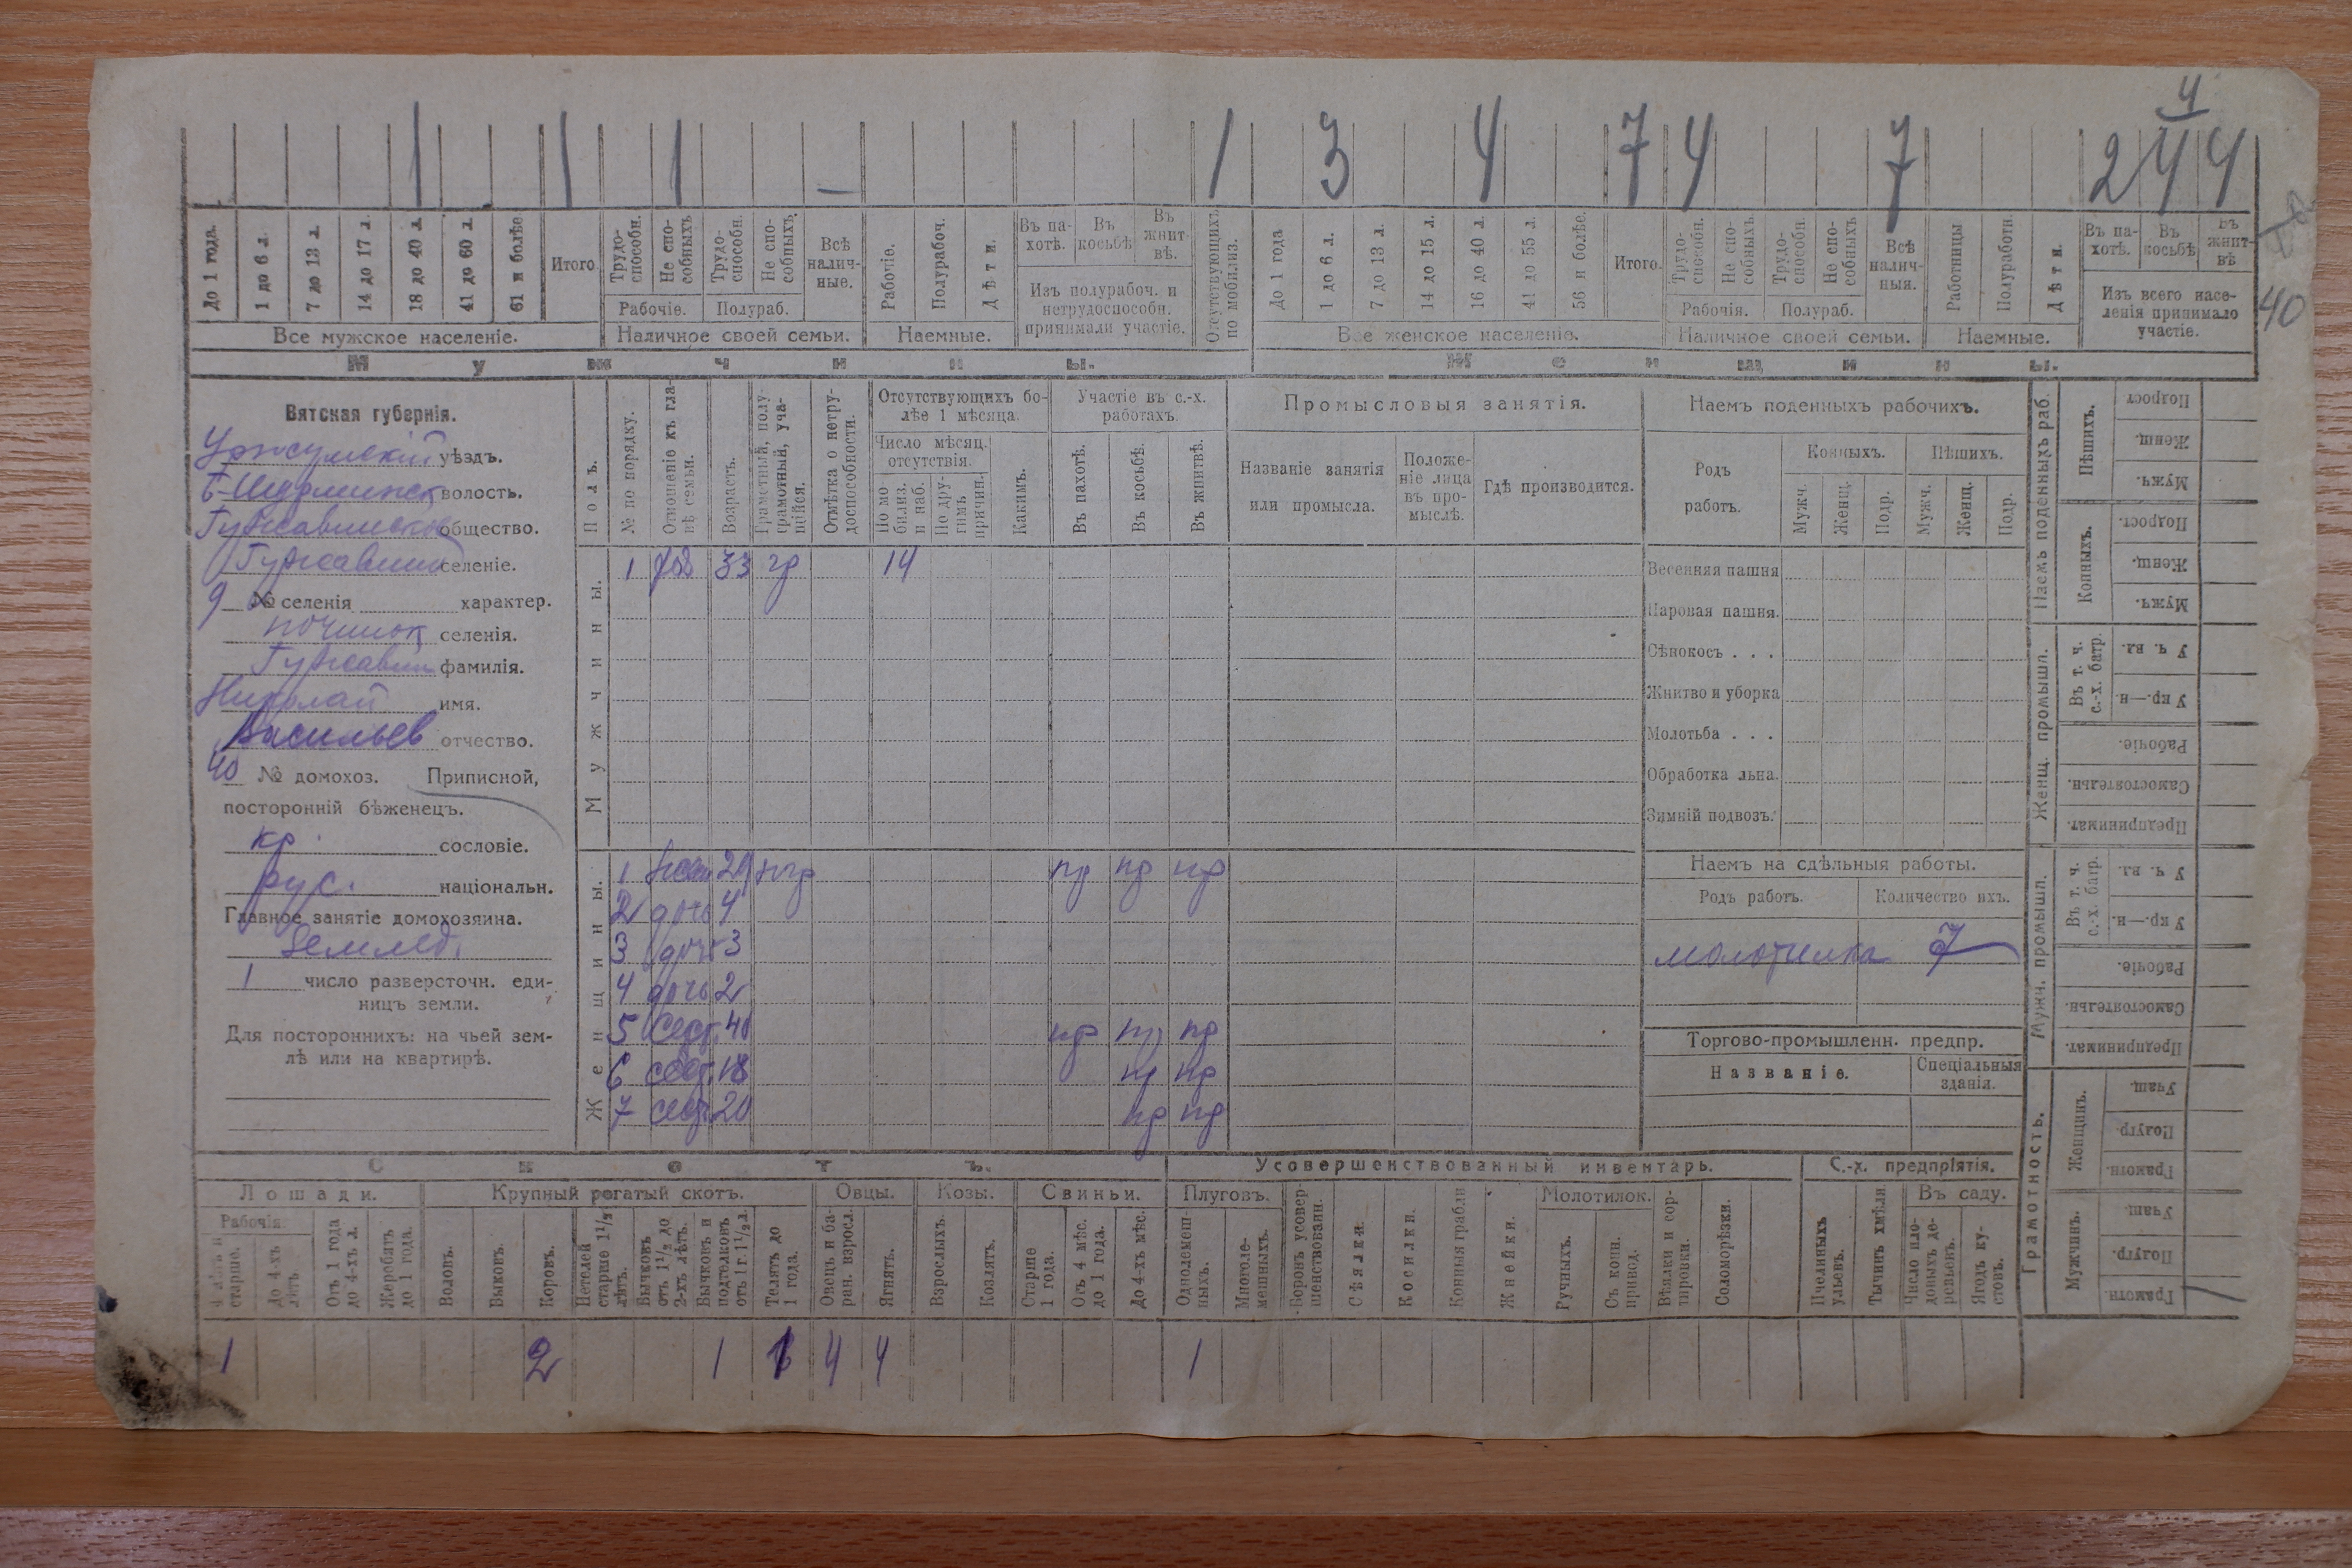 4
1 1 1 — 1 3 4 7 4 7 2 4 4
До 1 года.
1 до 6 л.
7 до 13 л.
14 до 17 л.
18 до 40 л.
41 до 60 л.
61 и болѣе
Итого
Трудоспособн.
Не способныхъ
Трудоспособн.
Не способныхъ.
Всѣ наличные.
Рабочіе.
Полурабоч.
Дѣти.
Въ пахотѣ.
Въ косьбѣ
Въ жнитвѣ.
Отсутствующихъ по мобилиз.
До 1 года
1 до 6 л.
7 до 13 л.
14 до 15 л.
16 до 40 л.
41 до 55 л.
56 и болѣе.
Итого.
Трудоспособн.
Не способныхъ.
Трудоспособн.
Не способныхъ
Всѣ наличныя.
Работницы
Полуработн.
Дѣти.
Въ пахотѣ.
Въ косьбѣ
Въ жнитвѣ
40
Рабочіе. Полураб.
Изъ полурабоч. и нетрудоспособн. принимали участіе.
Рабочія. Полураб.
Изъ всего населенія принимало участіе.
Все мужское населеніе. Наличное своей семьи. Наемные.
Все женское населеніе. Наличное своей семьи. Наемные.
Мужчины. Женщины.
Вятская губернія.
Уржумскій уѣздъ.
Б-Шурминск волость.
Гужавинское общество.
Гужавин селеніе.
9 № селенія характер.
починок селенія.
Гужавин фамилія.
Николай имя.
Васильев отчество.
40 № домохоз. Приписной,
посторонній бѣженецъ.
кр. сословіе.
рус. національн.
Главное занятіе домохозяина.
Землед.
1 число разверсточн. единицъ земли.
Для постороннихъ: на чьей землѣ или на квартирѣ.
Полъ.
№ по порядку.
Отношеніе къ главѣ семьи.
Возрастъ.
Грамотный, полуграмотный, учащійся.
Отмѣтка о нетрудоспособности.
Отсутствующихъ болѣе 1 мѣсяца.
Число мѣсяц. отсутствія.
По мобилиз. и наб.
По другимъ причин.
Какимъ.
Участіе въ с.-х. работахъ.
Въ пахотѣ.
Въ косьбѣ.
Въ жнитвѣ.
Промысловыя занятія.
Названіе занятія или промысла.
Положеніе лица въ промыслѣ.
Гдѣ производится.
Мужчины.
1 33 гр 14
Женщины.
1 жена пр пр пр
2 дочь 4
3 дочь 3
4 дочь 2
5 сестр. пр пр пр
6 сестр. 18 пр пр
7 сестр. 20 пр пр
Наемъ поденныхъ рабочихъ.
Родъ работъ.
Конныхъ. Пѣшихъ.
Мужч. Женщ. Подр. Мужч. Женщ. Подр.
Весенняя пашня
Паровая пашня.
Сѣнокосъ . . .
Жнитво и уборка
Молотьба . . .
Обработка льна.
Зимній подвозъ.
Наемъ на сдѣльныя работы.
Родъ работъ. Количество ихъ.
молотилка 7
Торгово-промышленн. предпр.
Названіе. Спеціальныя зданія.
Наемъ поденныхъ раб.
Пѣшихъ.
Подрост
Женщ.
Мужч.
Конныхъ.
Подрост.
Женщ.
Мужч.
Женщ. промышл.
Въ т. ч. с.-х. батр.
У ч. вл.
У кр.—н.
Рабочіе.
Самостоятельн.
Предпринимат.
Мужч. промышл.
Въ т. ч. с.-х. батр.
У ч. вл.
У кр.—н.
Рабочіе.
Самостоятельн.
Предпринимат.
Грамотность.
Женщинъ.
Учащ.
Полугр.
Грамотн.
Мужчинъ.
Учащ.
Полугр.
Грамотн. 1
Скотъ. Усовершенствованный инвентарь. С.-х. предпріятія.
Лошади. Крупный рогатый скотъ. Овцы. Козы. Свиньи. Плуговъ. Молотилок. Въ саду.
Рабочія.
4 лѣтъ и старше.
до 4-хъ лѣтъ.
Отъ 1 года до 4-хъ л.
Жеребятъ до 1 года.
Воловъ.
Быковъ.
Коровъ.
Нетелей старше 1 1/2 лѣтъ.
Бычковъ отъ 1 1/2 до 2-хъ лѣтъ.
Бычковъ и подтелковъ отъ 1 г. 1 1/2 л.
Телятъ до 1 года.
Овецъ и баран. взросл.
Ягнятъ.
Взрослыхъ.
Козлятъ.
Старше 1 года.
Отъ 4 мѣс. до 1 года.
До 4-хъ мѣс.
Однолемешныхъ.
Многолемешныхъ.
Боронъ усовершенствованн.
Сѣялки.
Косилки.
Конныя грабли
Жнейки.
Ручныхъ.
Съ конн. привод.
Вѣялки и сортировки.
Соломорѣзки.
Пчелиныхъ ульевъ.
Тычинъ хмѣля
Число плодовыхъ деревьевъ.
Ягодъ кустовъ.
1 2 1 1 4 4 1